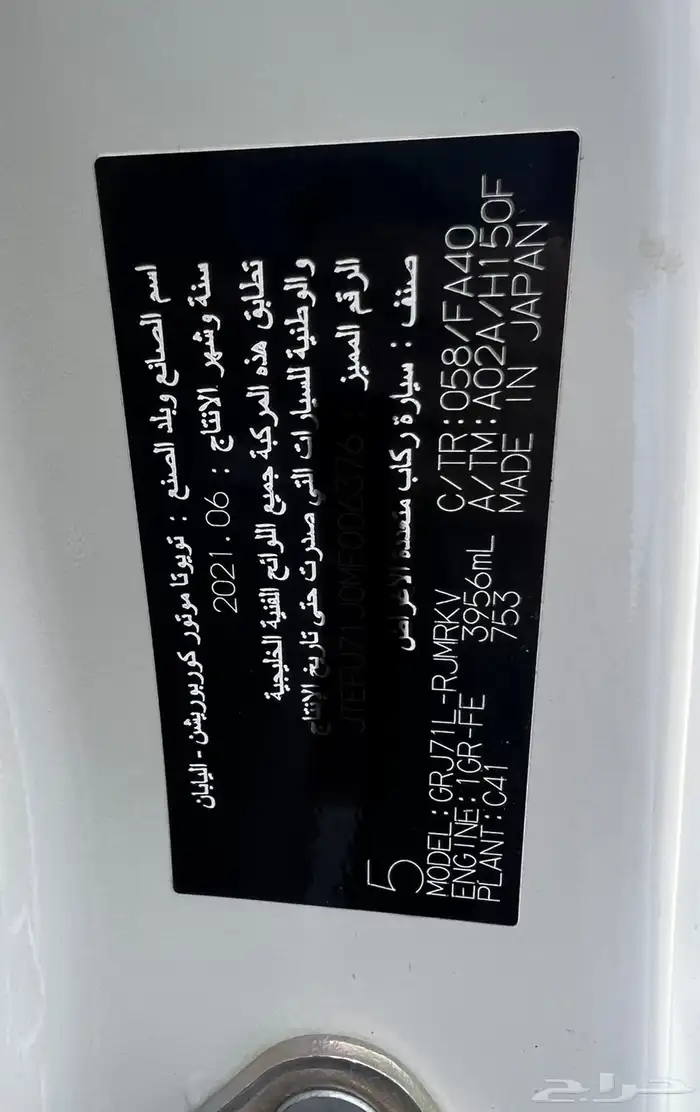 اسم الصانع وبلد الصنع : تويوتا موتور كوربوريشن - اليابان
سنة وشهر الانتاج : 2021.06
تطابق هذه المركبة جميع اللوائح الفنية الخليجية
والوطنية للسيارات التي صدرت حتى تاريخ الإنتاج
الرقم المميز : JTEFU71J0MF006376
صنف : سيارة ركاب متعددة الاغراض
5
MODEL:GRJ71L-RJMRKV C/TR:058/FA40
ENGINE:1GR-FE 3956mL A/TM:A02A/H150F
PLANT:C41 753 MADE IN JAPAN
حراج